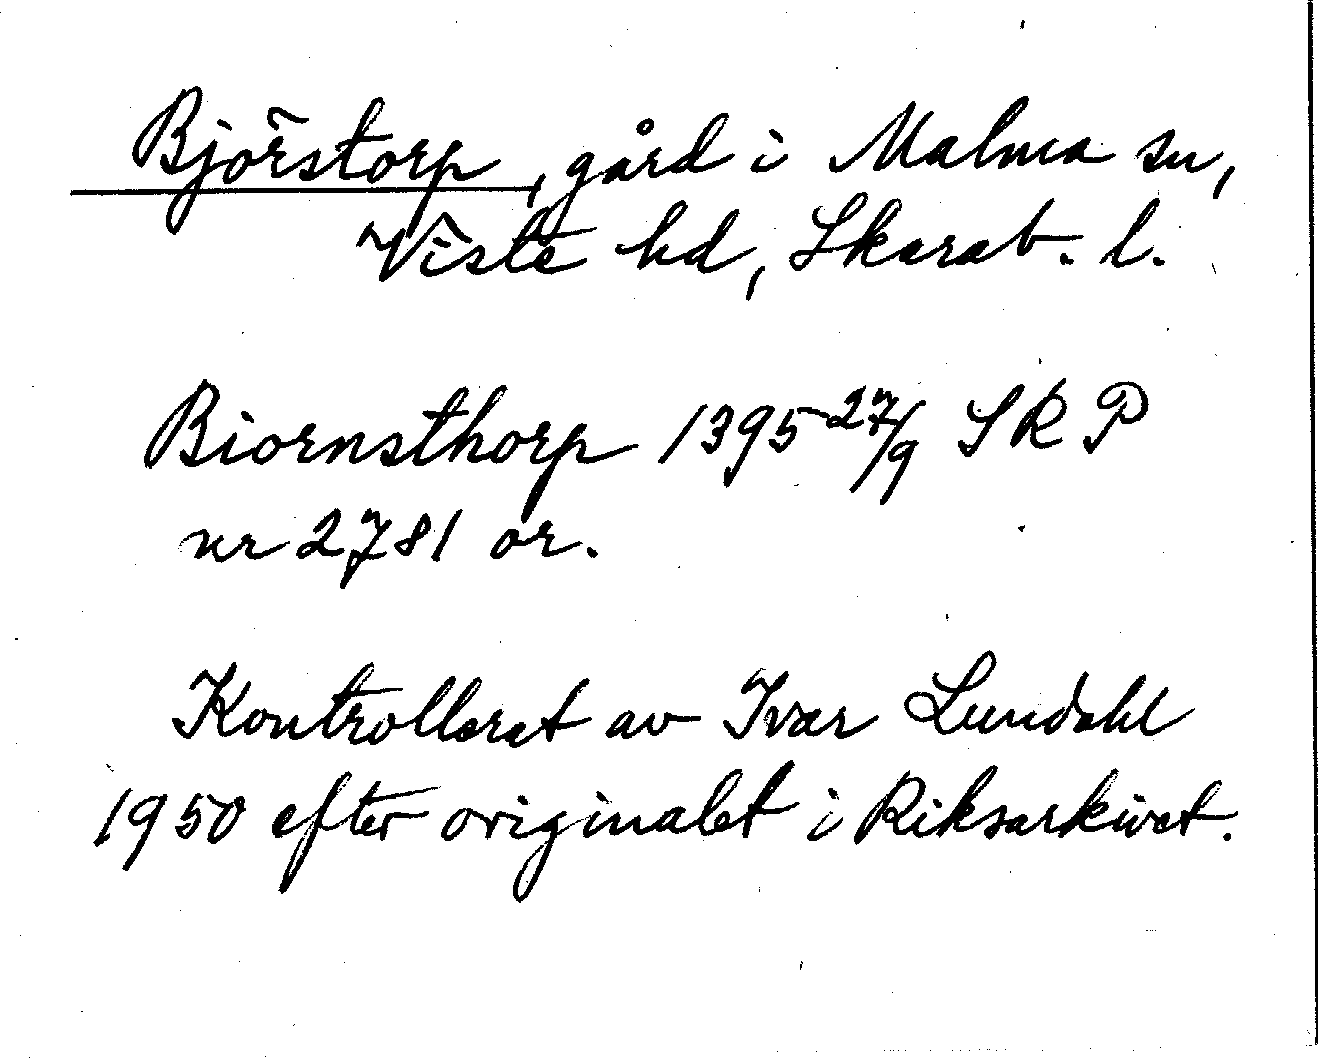 Björstorp, gård i Malma sn,
Viste hd, Skarab. l.
Biornsthorp 1395 27/9 SRP
nr 2781 or.
Kontrollerat av Ivar Lundahl
1950 efter originalet i Riksarkivet.